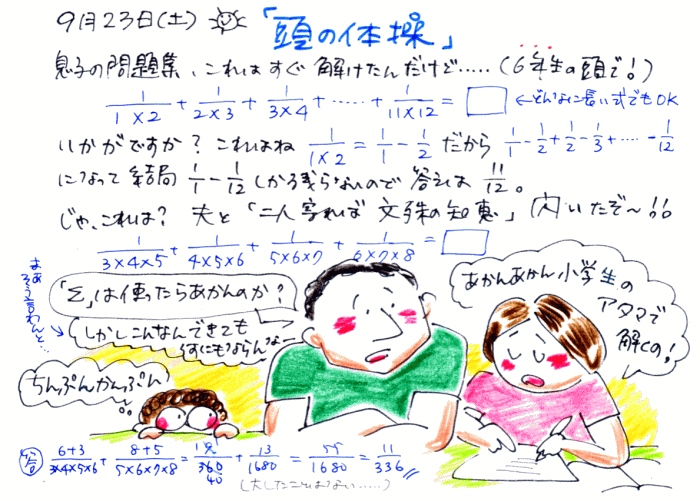 9月23日(土) 「頭の体操」
息子の問題集、これはすぐ解けたんだけど‥‥‥(6年生の頭で!)
1/1×2 + 1/2×3 + 1/3×4 + ‥‥‥ + 1/11×12 = □ ←どんなに長い式でもOK
いかがですか? これはね 1/1×2 = 1/1 - 1/2 だから 1/1 - 1/2 + 1/2 - 1/3 + ‥‥ - 1/12
になって結局 1/1 - 1/12 しか残らないので答えは 11/12。
じゃ、これは? 夫と「二人寄れば文殊の知恵」 ひらいたぞ〜!!
1/3×4×5 + 1/4×5×6 + 1/5×6×7 + 1/6×7×8 = □
「Σ」は使ったらあかんのか?
あかんあかん小学生の
アタマで
解くの!
しかしこんなんできても
何にもならんなー
まあ
そう言わんと‥
ちんぷんかんぷん
答 6+3/3×4×5×6 + 8+5/5×6×7×8 = /360 40 + 13/1680 = 55/1680 = 11/336
(大したことはない‥‥‥)